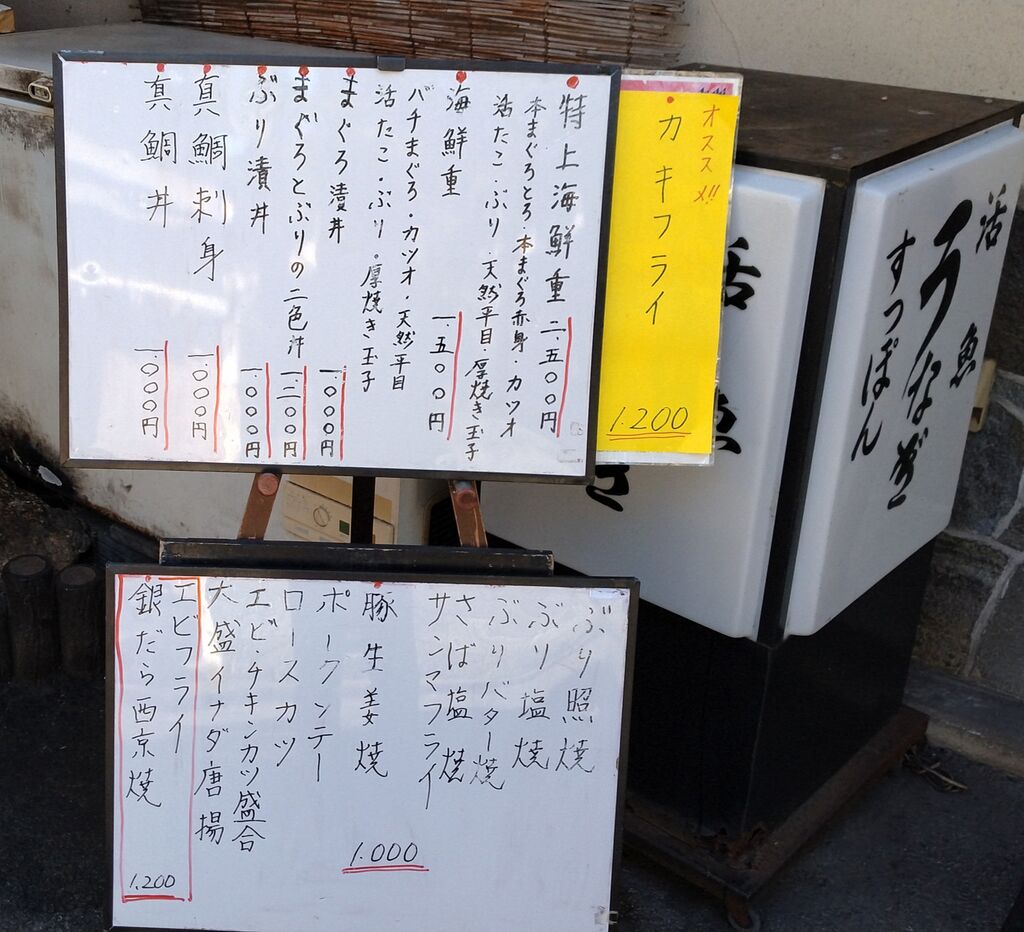 特上海鮮重 二、五〇〇円
本まぐろとろ・本まぐろ赤身・カツオ
活たこ・ぶり・天然平目 厚焼き玉子
海鮮重 一、五〇〇円
バチまぐろ・カツオ・天然平目
活たこ・ぶり。厚焼き玉子
まぐろ漬丼 一、〇〇〇円
まぐろとぶりの二色丼 一、二〇〇円
ぶり漬丼 一、〇〇〇円
真鯛刺身 一、〇〇〇円
真鯛丼 一、〇〇〇円
オススメ!!
カキフライ
1.200
活魚
うなぎ
すっぽん
活
魚
ぶり照焼
ぶり塩焼
ぶりバター焼
さば塩焼
サンマフライ
豚生姜焼
ポークソテー
ロースカツ
エビ・チキンカツ盛合
大盛イナダ唐揚
1.000
エビフライ
銀だら西京焼
1.200